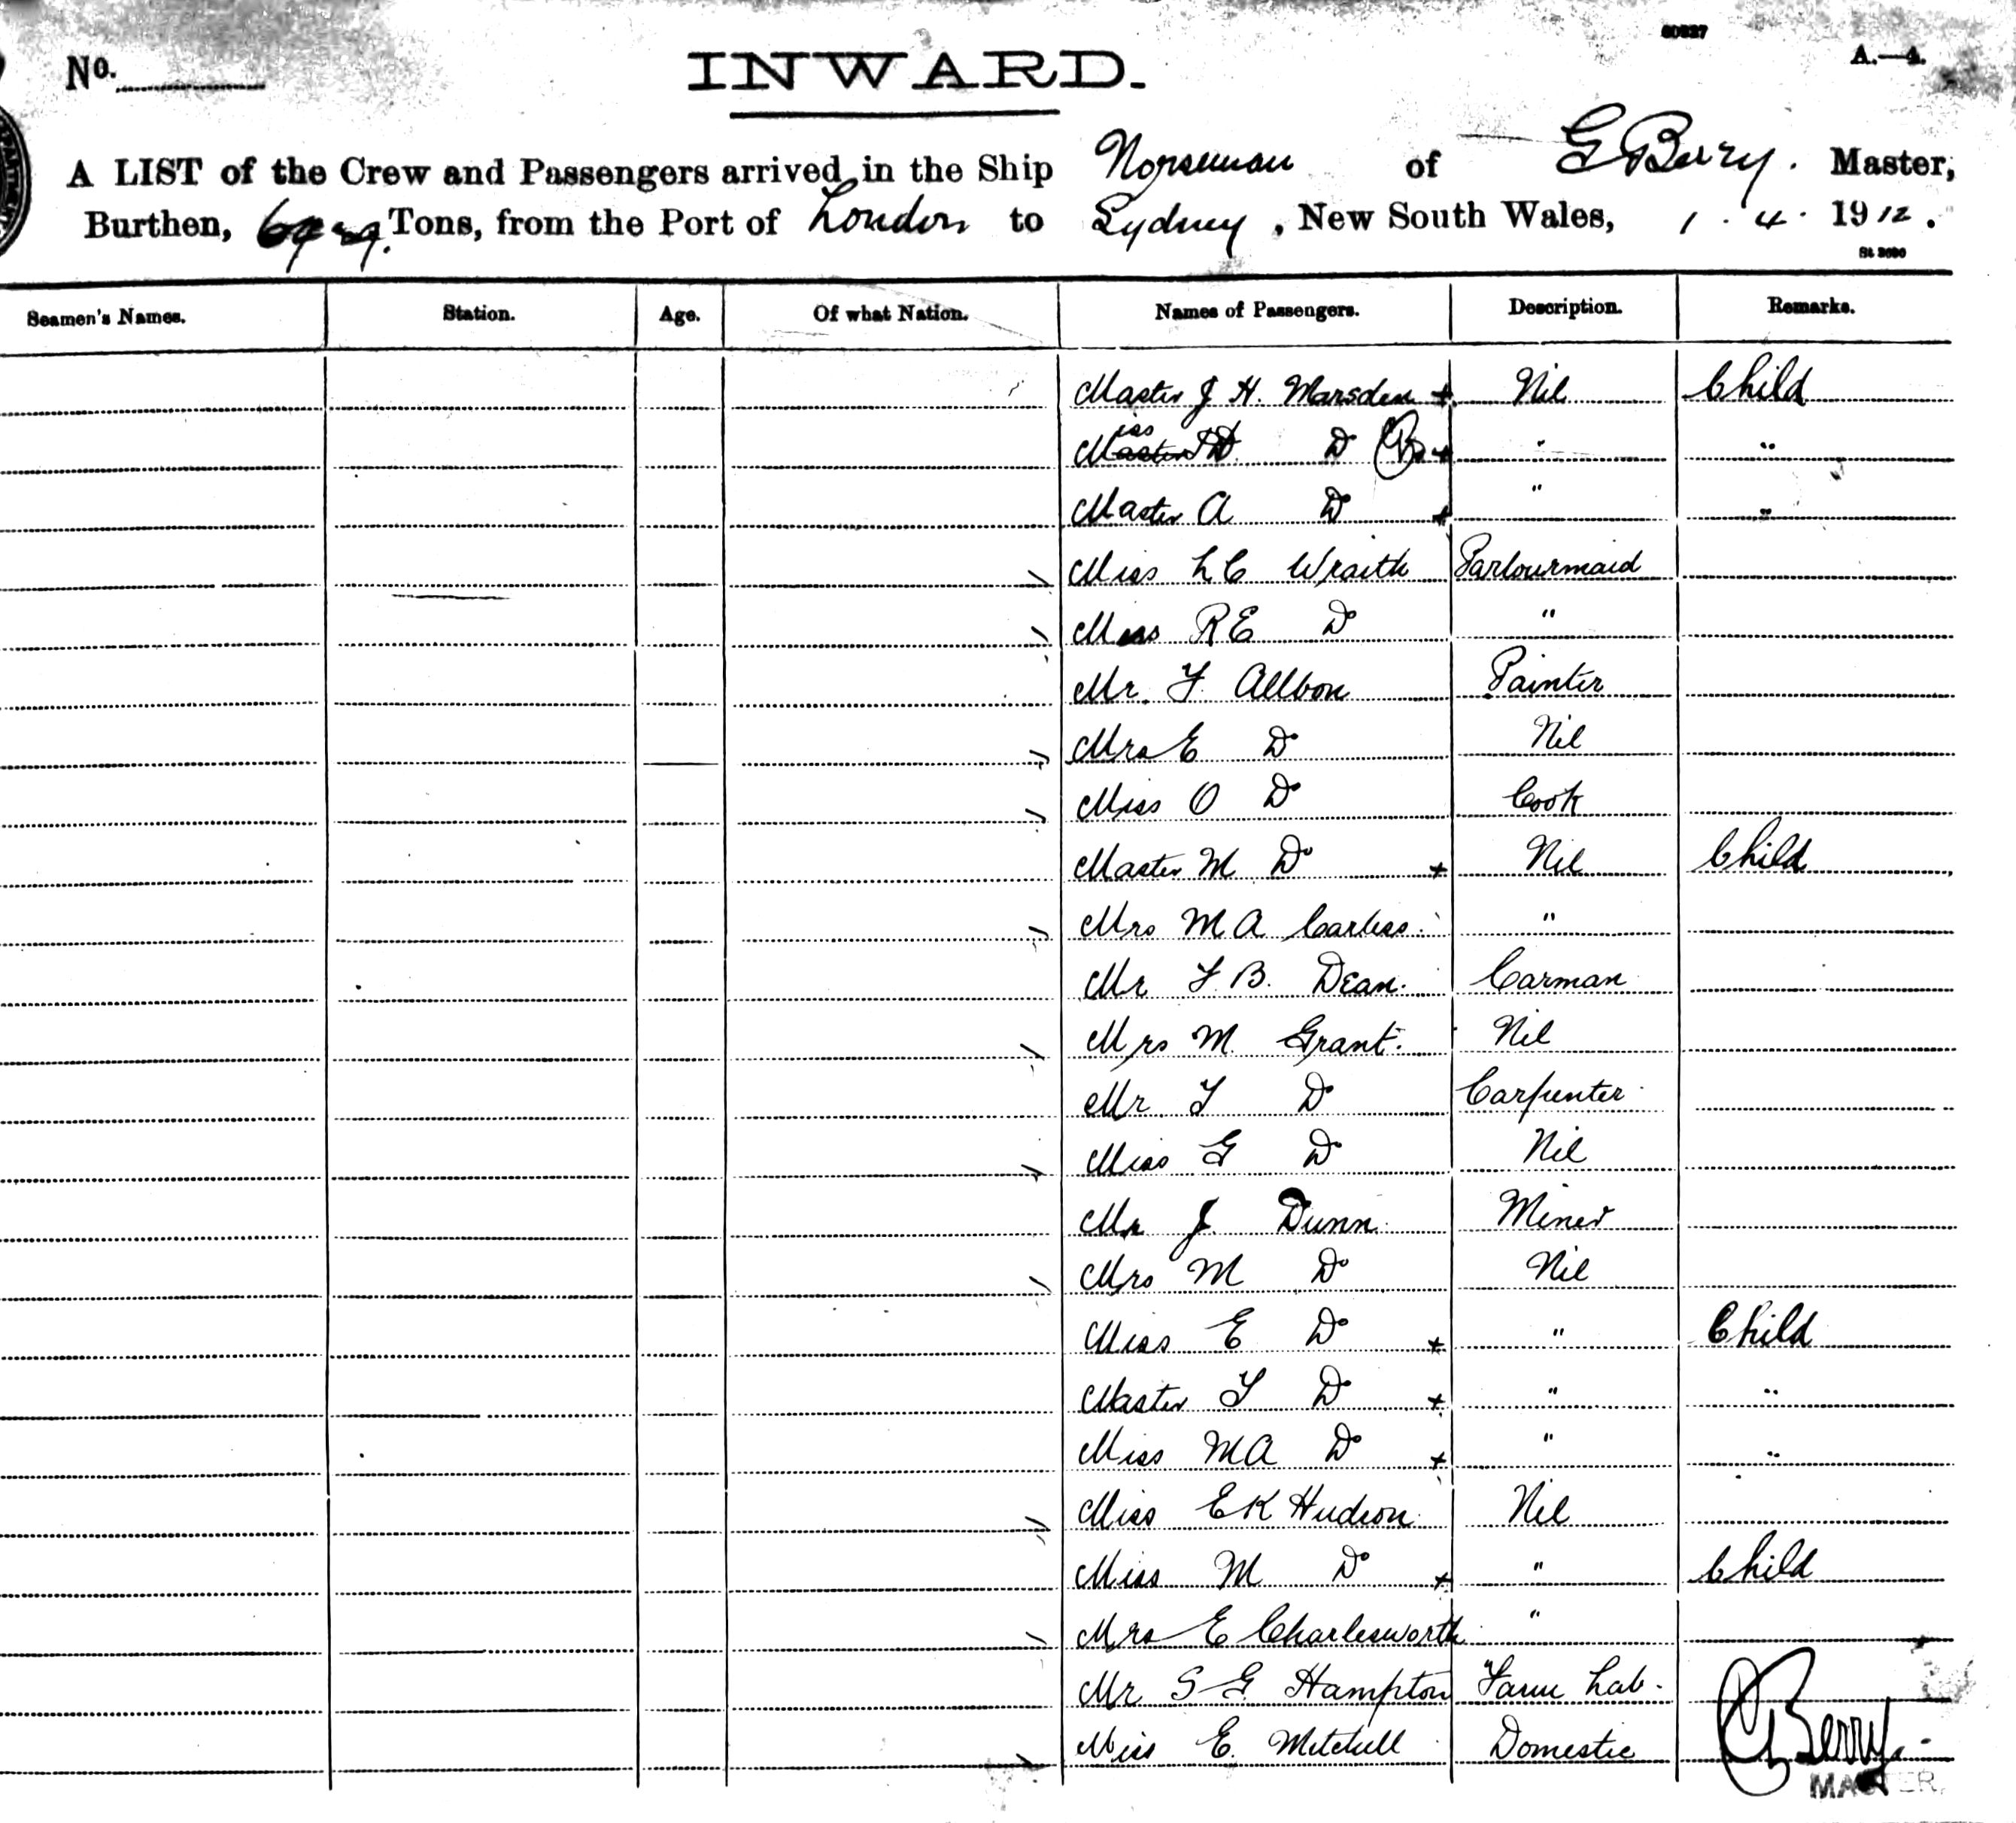 60327
No. INWARD. A.—4.
A LIST of the Crew and Passengers arrived in the Ship Norseman of G Berry. Master,
Burthen, Tons, from the Port of London to Sydney, New South Wales, 1. 4. 1912.
Seamen's Names. Station. Age. Of what Nation. Names of Passengers. Description. Remarks.
Master J H. Marsden + Nil Child
Miss Do + " "
Master A Do + " "
Miss L C Wraith Parlourmaid
Miss R E Do "
Mr. F. Allbon Painter
Mrs E Do Nil
Miss O Do Cook
Master M Do + Nil Child
Mrs M A Carless "
Mr F. B. Dean. Carman
Mrs M. Grant. Nil
Mr T Do Carpenter
Miss G Do Nil
Mr J. Dunn Miner
Mrs M Do Nil
Miss E Do + " Child
Master T Do + " "
Miss M A Do + " "
Miss E K Hudson Nil
Miss M Do + " Child
Mrs E Charlesworth "
Mr S G Hampton Farm Lab.
Miss E. Mitchell Domestic
G Berry.
MASTER.